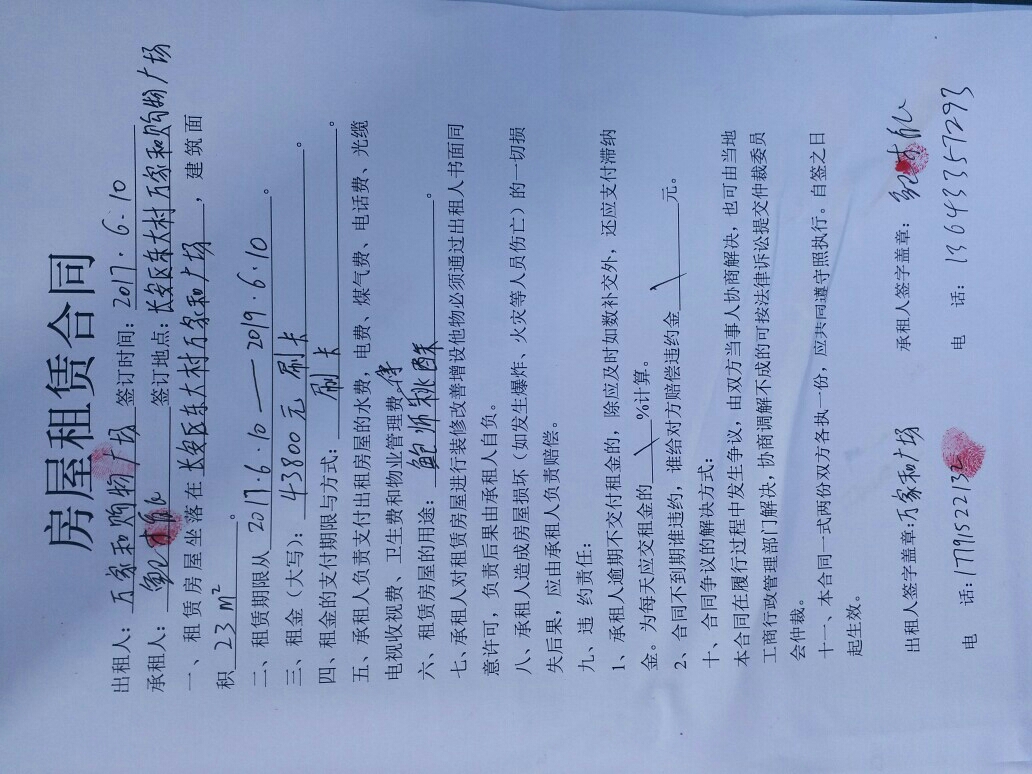 房屋租赁合同
出租人：万家和购物广场 签订时间：2017.6.10
承租人： 签订地点：长安区东大村万家和购物广场
一、租赁房屋坐落在 长安区东大村万家和广场，建筑面
积 23m²。
二、租赁期限从 2017.6.10——2019.6.10。
三、租金（大写）：43800元 刷卡。
四、租金的支付期限与方式： 刷卡。
五、承租人负责支付出租房屋的水费，电费、煤气费、电话费、光缆
电视收视费、卫生费和物业管理费 等
六、租赁房屋的用途： 鲍师桃酥。
七、承租人对租赁房屋进行装修改善增设他物必须通过出租人书面同
意许可，负责后果由承租人自负。
八、承租人造成房屋损坏（如发生爆炸、火灾等人员伤亡）的一切损
失后果，应由承租人负责赔偿。
九、违约责任：
1、承租人逾期不交付租金的，除应及时如数补交外，还应支付滞纳
金。为每天应交租金的 \ %计算。
2、合同不到期谁违约，谁给对方赔偿违约金 \ 元。
十、合同争议的解决方式：
本合同在履行过程中发生争议，由双方当事人协商解决，也可由当地
工商行政管理部门解决，协商调解不成的可按法律诉讼提交仲裁委员
会仲裁。
十一、本合同一式两份双方各执一份，应共同遵守照执行。自签之日
起生效。
出租人签字盖章：万家和广场 承租人签字盖章：
电 话：17791522132 电 话：13643357293